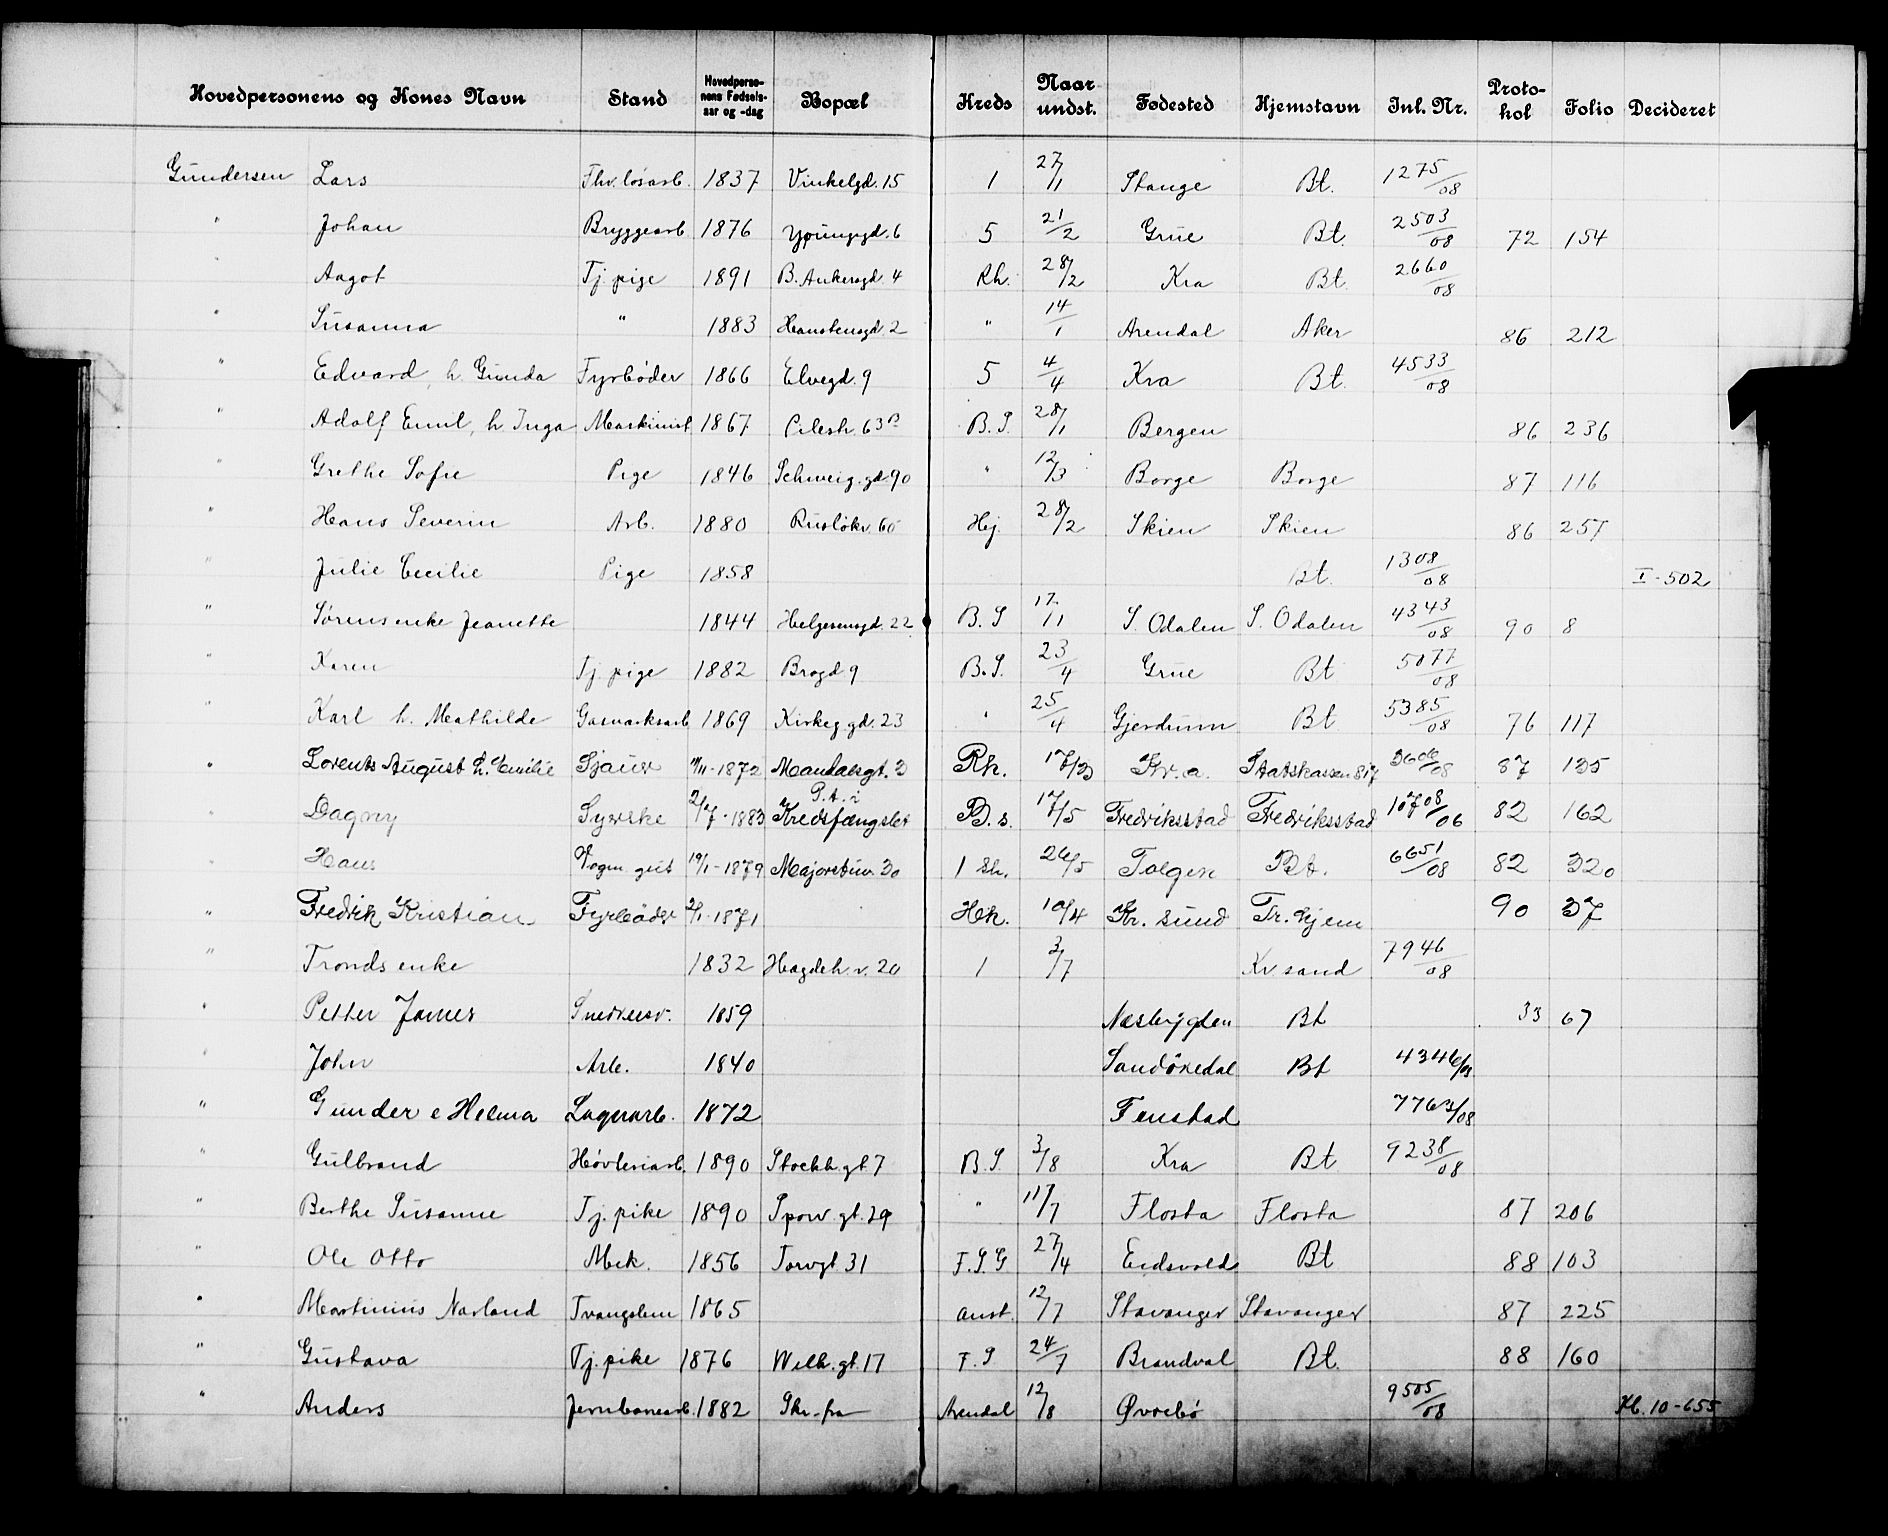 Hovedpersonens og Hones Navn Stand Hovedperso-nens Fødsels-aar og -dag Bopæl Kreds Naar undst. Fødested Hjemstavn Inl. Nr. Proto-kol Folio Decideret
Gundersen Lars Fhv. løsarb. 1837 Vinkelgd. 15 1 27/1 Stange Bt. 1275/08
" Johan Bryggearb 1876 Youngsgd. 6 5 21/2 Grue Bt. 2503/08 72 154
" Aagot Tj. pige 1891 B. Ankersgd. 4 Rh. 28/2 Kra Bt. 2660/08
" Susanna " 1883 Hanstensgd. 2 " 14/1 Arendal Aker 86 212
" Edvard, h. Gunda Fyrbøder 1866 Elvegd. 9 5 4/4 Kra Bt. 4533/08
" Adolf Emil, h. Inga Maskinist 1867 Pilestr. 63B B. S. 28/1 Bergen 86 236
" Grethe Sofie Pige 1846 Schweig. gd. 90 " 12/3 Borge Borge 87 116
" Hans Severin Arb. 1880 Rusløkv. 60 Hj. 28/2 Skien Skien 86 257
" Julie Cecilie Pige 1858 Bt. 1308/08 I-502
" Sørens enke Jeanette 1844 Helgesensgd. 22 B. S 17/1 S. Odalen S. Odalen 4343/08 90 8
" Karen Tj. pige 1882 Brogd 9 B. S. 23/4 Grue Bt 5077/08
" Karl h. Mathilde Gasværksarb 1869 Kirkeg. gd. 23 " 25/4 Gjerdrum Bt 5385/08 76 117
" Lorents August h. Emilie Sjauer 11/11-1872 Mandalsgt. 3 Rh. 17/3 Kr.a. Statskassen 817 3606/08 87 135
" Dagny Syerske 2/7-1883 P.t. i Kredsfængslet B. s. 17/5 Fredriksstad Fredriksstad 10708/06 82 162
" Hans Vogm. gut 19/1-1879 Majorstuv. 30 1 Sk. 26/5 Tolgen Bt. 6651/08 82 320
" Fredrik Kristian Fyrbøder 2/1-1871 Hek. 10/4 Kr. sund Tr. hjem 90 37
" Tronds enke 1832 Hægdeh. v. 20 1 3/7 Kr sand 7946/08
" Petter James Snedkersv. 1859 Næsbygden Bt 33 67
" John Arb. 1840 Sandøkedal Bt 4346/08
" Gunder e Helma Lagerarb. 1872 Fenstad 7763/08
" Gulbrand Høvleriarb. 1890 Stockh. gt. 7 B. S. 3/8 Kra Bt 9238/08
" Berthe Susanne Tj. pike 1890 Sporv. gt. 29 " 11/7 Flosta Flosta 87 206
" Ole Otto Mek. 1856 Torvgt. 31 F. S. G 27/4 Eidsvold Bt 88 103
" Martinius Narland Tvangslem 1865 Anst. 12/7 Stavanger Stavanger 87 225
" Gustava Tj. pike 1876 Welh. gt. 17 F. S 24/7 Brandval Bt. 88 160
" Anders Jernbanearb. 1882 Skr. fra Arendal 12/8 Øvrebø 9505/08 Kl. 10-655